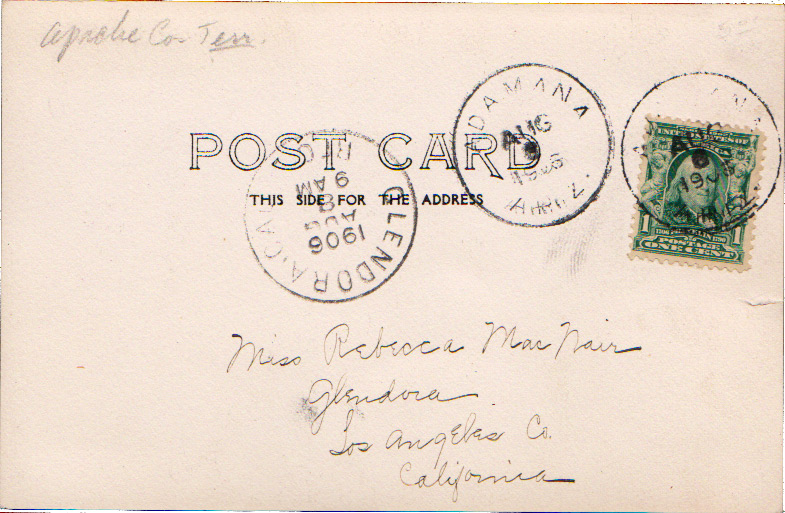 Apache Co Terr.
5.00
POST CARD
THIS SIDE FOR THE ADDRESS
ADAMANA
AUG
6
1906
ARIZ.
AUG
6
1906
GLENDORA, CAL
REC'D
9 AM
8
AUG
1906
1
POSTAGE
ONE CENT
1
Miss Rebecca MacNair
Glendora
Los Angeles Co.
California